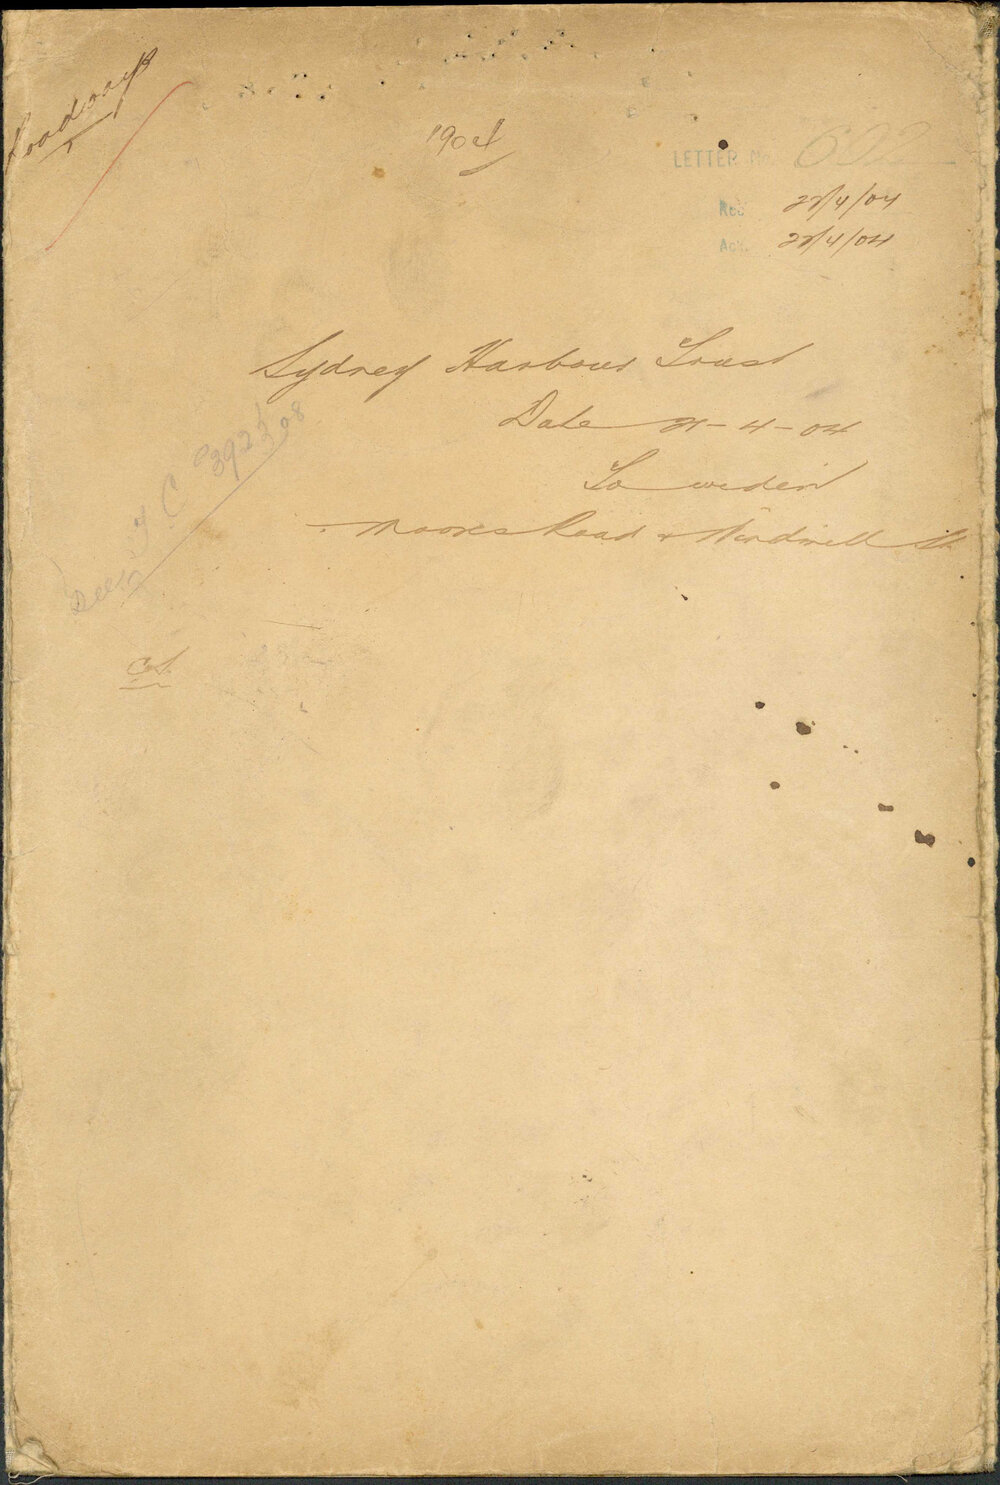 Roadways
1904
LETTER No. 692
Rec. 22/4/04
Ack. 22/4/04
Sydney Harbour Trust
Date 21-4-04
To widen
Moores Road & Windmill St.
See T C 3923/08